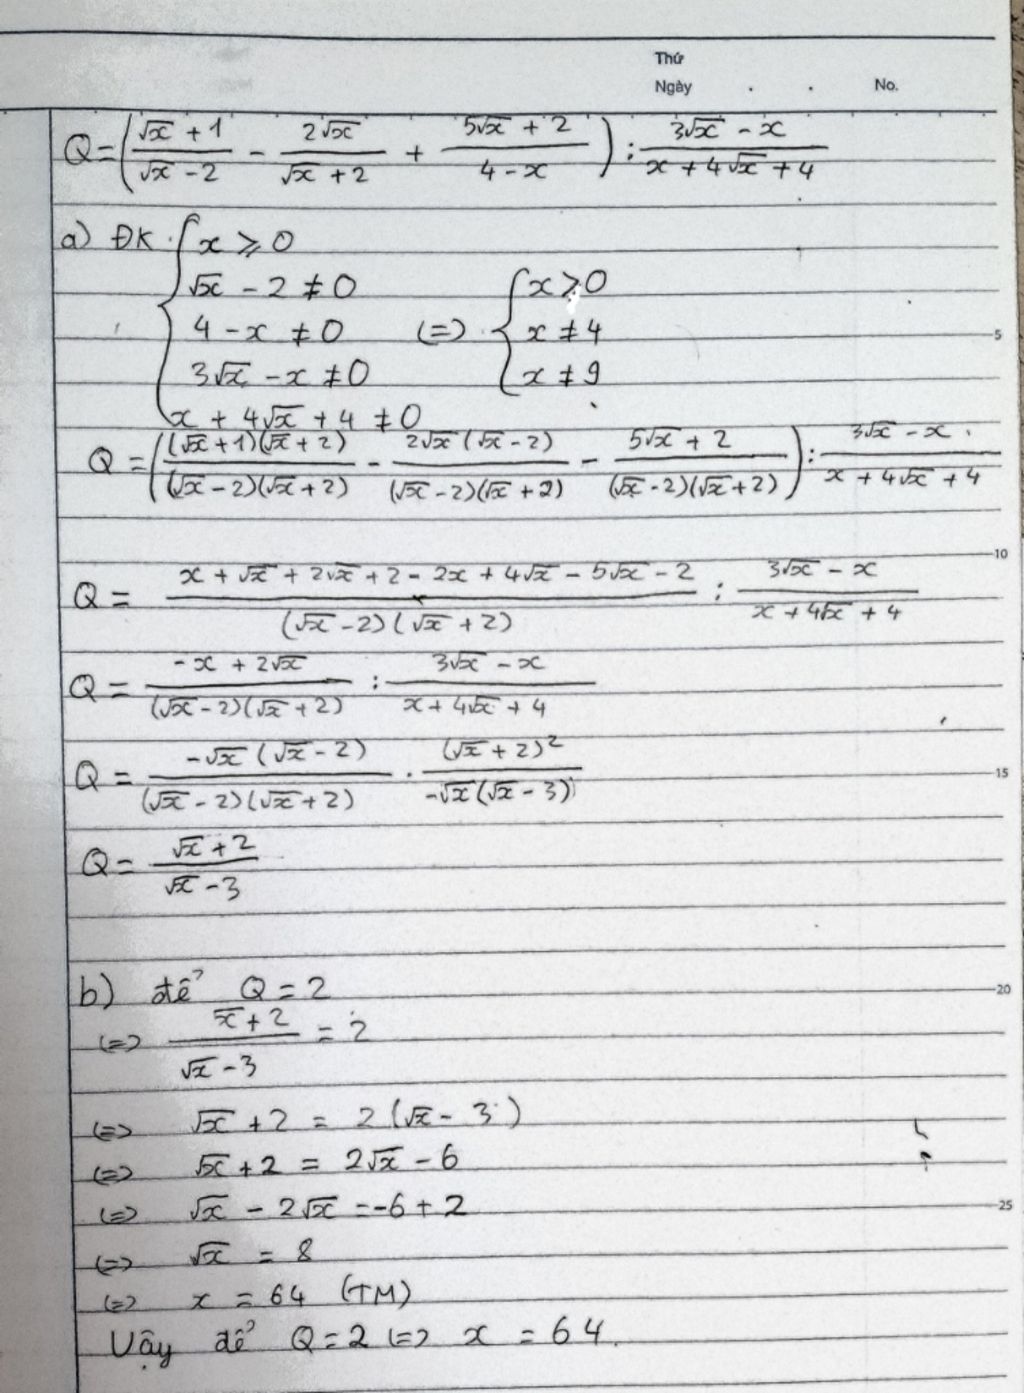 Thứ
Ngày . . No.
Q = ( (√x + 1)/(√x - 2) - 2√x/(√x + 2) + (5√x + 2)/(4 - x) ) : (3√x - x)/(x + 4√x + 4)
a) ĐK { x ⩾ 0
√x - 2 ≠ 0 { x ⩾ 0
4 - x ≠ 0 (=) x ≠ 4
3√x - x ≠ 0 x ≠ 9
x + 4√x + 4 ≠ 0
Q = ( ((√x + 1)(√x + 2))/((√x - 2)(√x + 2)) - (2√x (√x - 2))/((√x - 2)(√x + 2)) - (5√x + 2)/((√x - 2)(√x + 2)) ) : (3√x - x)/(x + 4√x + 4)
Q = (x + √x + 2√x + 2 - 2x + 4√x - 5√x - 2)/((√x - 2)(√x + 2)) : (3√x - x)/(x + 4√x + 4)
Q = (-x + 2√x)/((√x - 2)(√x + 2)) : (3√x - x)/(x + 4√x + 4)
Q = (-√x (√x - 2))/((√x - 2)(√x + 2)) . (√x + 2)²/(-√x(√x - 3))
Q = (√x + 2)/(√x - 3)
b) để Q = 2
(=) (√x + 2)/(√x - 3) = 2
(=) √x + 2 = 2(√x - 3)
(=) √x + 2 = 2√x - 6
(=) √x - 2√x = -6 + 2
(=) √x = 8
(=) x = 64 (TM)
Vậy để Q = 2 (=) x = 64.
5
10
15
20
25